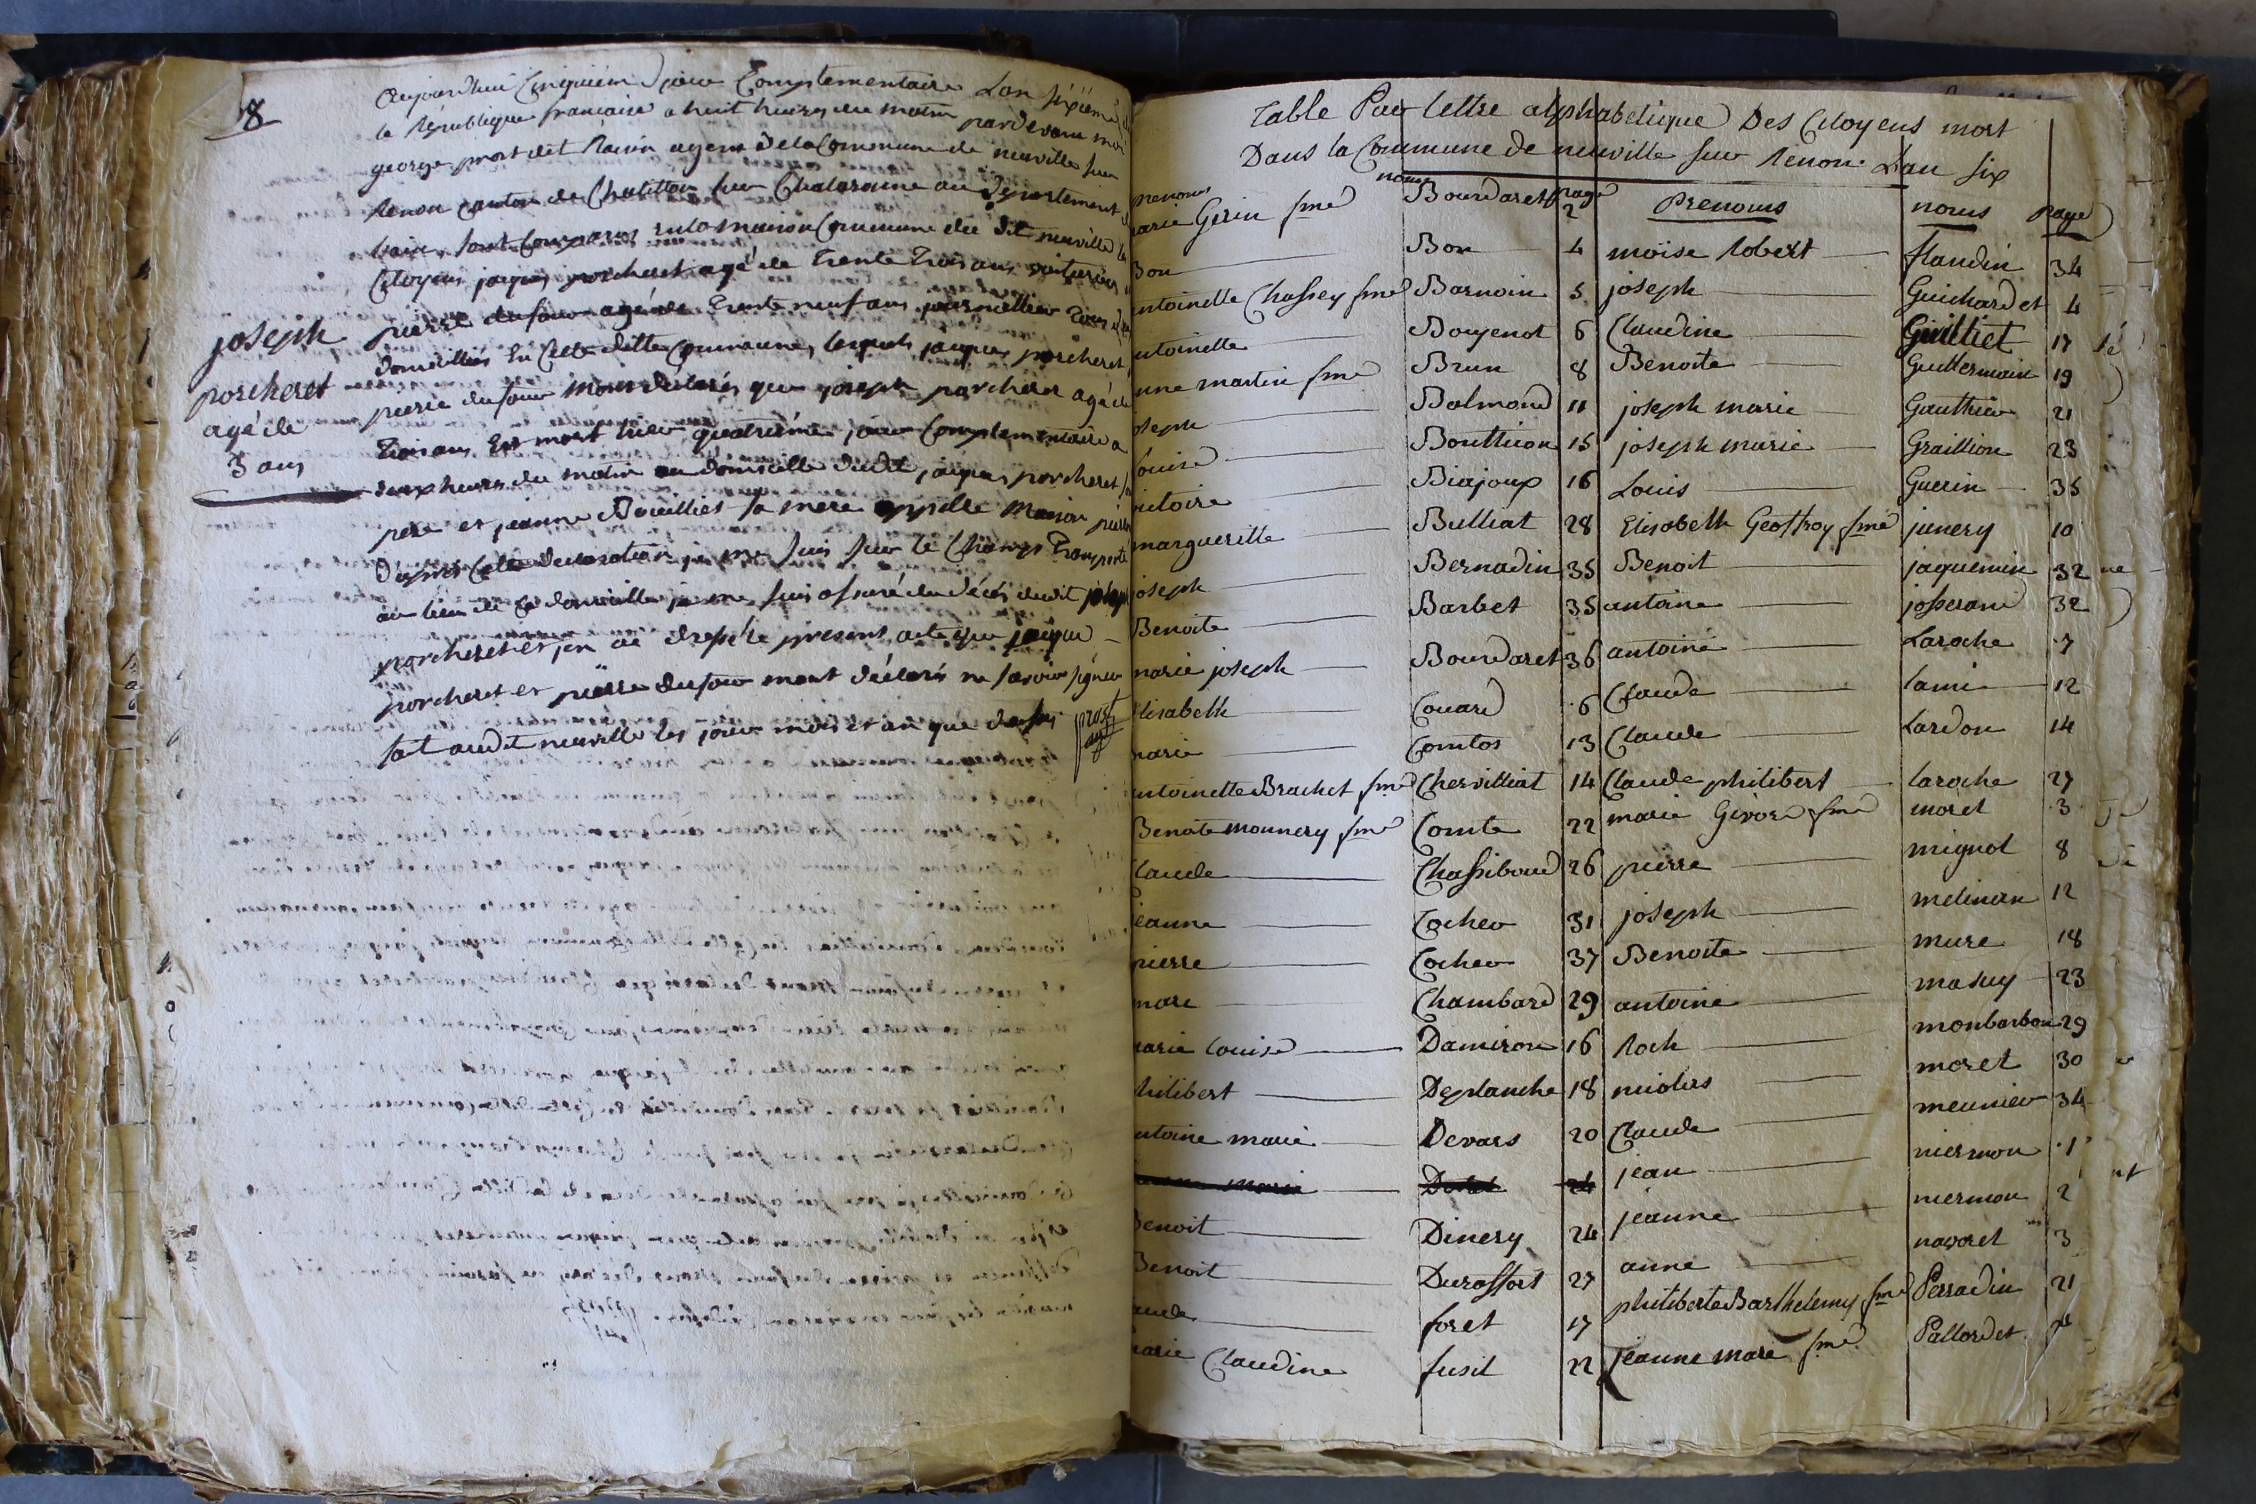 8
aujourdhui Cinquiéme jour Complementaire Lan sixiéme
la République francaise a huit heures du matin pardevant moi
george prost dit Ravin agent de la Commune de neuville sur
Renon canton de Chatillon sur Chalaronne au département
sont Comparus en la maison Commune du dit neuville
Citoyens jaques porcheret agé de trente trois ans
pierre dufour agé de trente neuf ans journallier tous
domiciliés En Cette ditte Commune, lesquels jaques porcheret
pierre dufour mont declarés que joseph porcheret agé de
trois ans Est mort hier quatriéme jour Complementaire a
deux heures du matin au domicille dudit jaques porcheret
pere et jeanne Bouilliet sa mere appelle maison
D'après Cette Declaration je me suis sur le Champs Transporté
au lieu de Ce domicille je me suis assuré du décés dudit joseph
porcheret et jen ai dressé le present acte que jaque
porcheret et pierre dufour mont déclarés ne savoir signer
fait audit neuville les jour mois et an que dessus prost
agt
joseph
porcheret
agé de
3 ans
Table Par lettre alphabetique Des Citoyens mort
Dans la Commune de neuville sur Renon Lan six
prenoms noms page Prenoms noms page
arie Gerin fme Bourdaret 2
Bon Bon 4 moïse Robert flandin 34
ntoinette Chassey fme Barnoin 5 joseph Guichardet 4
ntoinette Bouyenot 6 Claudine Guilliet 17
nne martin fme Brun 8 Benoite Guillermain 19
oseph Balmond 11 joseph marie Gauthier 21
ouise Bouthion 15 joseph marie Graillion 23
ictoire Biajoux 16 Louis Guerin 35
marguerille Bulliat 28 Elisabeth Geoffroy fme junery 10
joseph Bernadin 35 Benoit jaquemin 32
Benoite Barbet 35 antoine josserand 32
marie joseph Bourdaret 36 antoine Laroche 7
lisabeth Couard 6 Claude Lami 12
marie Comtos 13 Claude Lardon 14
ntoinette Brachet fme Chervilliat 14 Claude philibert laroche 27
Benoite monnery fme Comte 22 marie Givore fme moret 3
Claude Chassiboud 26 pierre mignot 8
jeanne Cocher 31 joseph melinan 12
pierre Cocher 37 Benoite mure 18
marc Chambard 29 antoine masuy 23
arie Louise Damiron 16 Roch monbarbon 29
hilibert Deplanche 18 nicolas moret 30
ntoine marie Devars 20 Claude meunier 34
marie jean niermon 1
Benoit Dinery 24 jeanne niermon 2
Benoit Duroffort 27 anne navoret 3
aude foret 17 philiberte Barthelemy fme Perradin 21
arie Claudine fusil 22 jeanne mare fme Pallordet